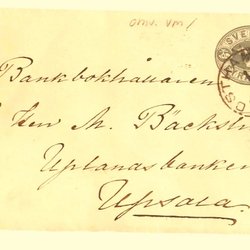 omv. vm/
SVE
OST
Bankbokhållaren
Herr M. Bäckst
Uplandsbanken
Upsala